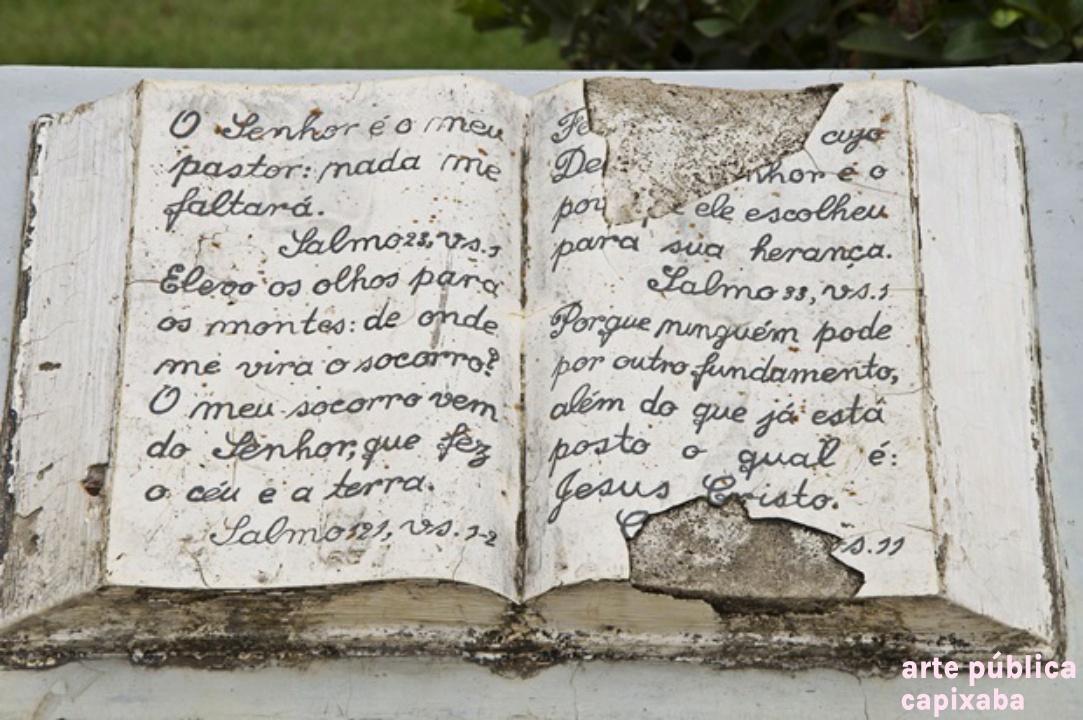 O Senhor é o meu
pastor: nada me
faltará.
Salmo 23, vs. 1
Elevo os olhos para
os montes: de onde
me vira o socorro?
O meu socorro vem
do Senhor, que fez
o céu e a terra.
Salmo 121, vs. 1-2
Fe cujo
De nhor é o
pov e ele escolheu
para sua herança.
Salmo 33, vs.
Porque ninguém pode
por outro fundamento,
além do que já está
posto o qual é:
Jesus Cristo.
s. 11
arte pública
capixaba